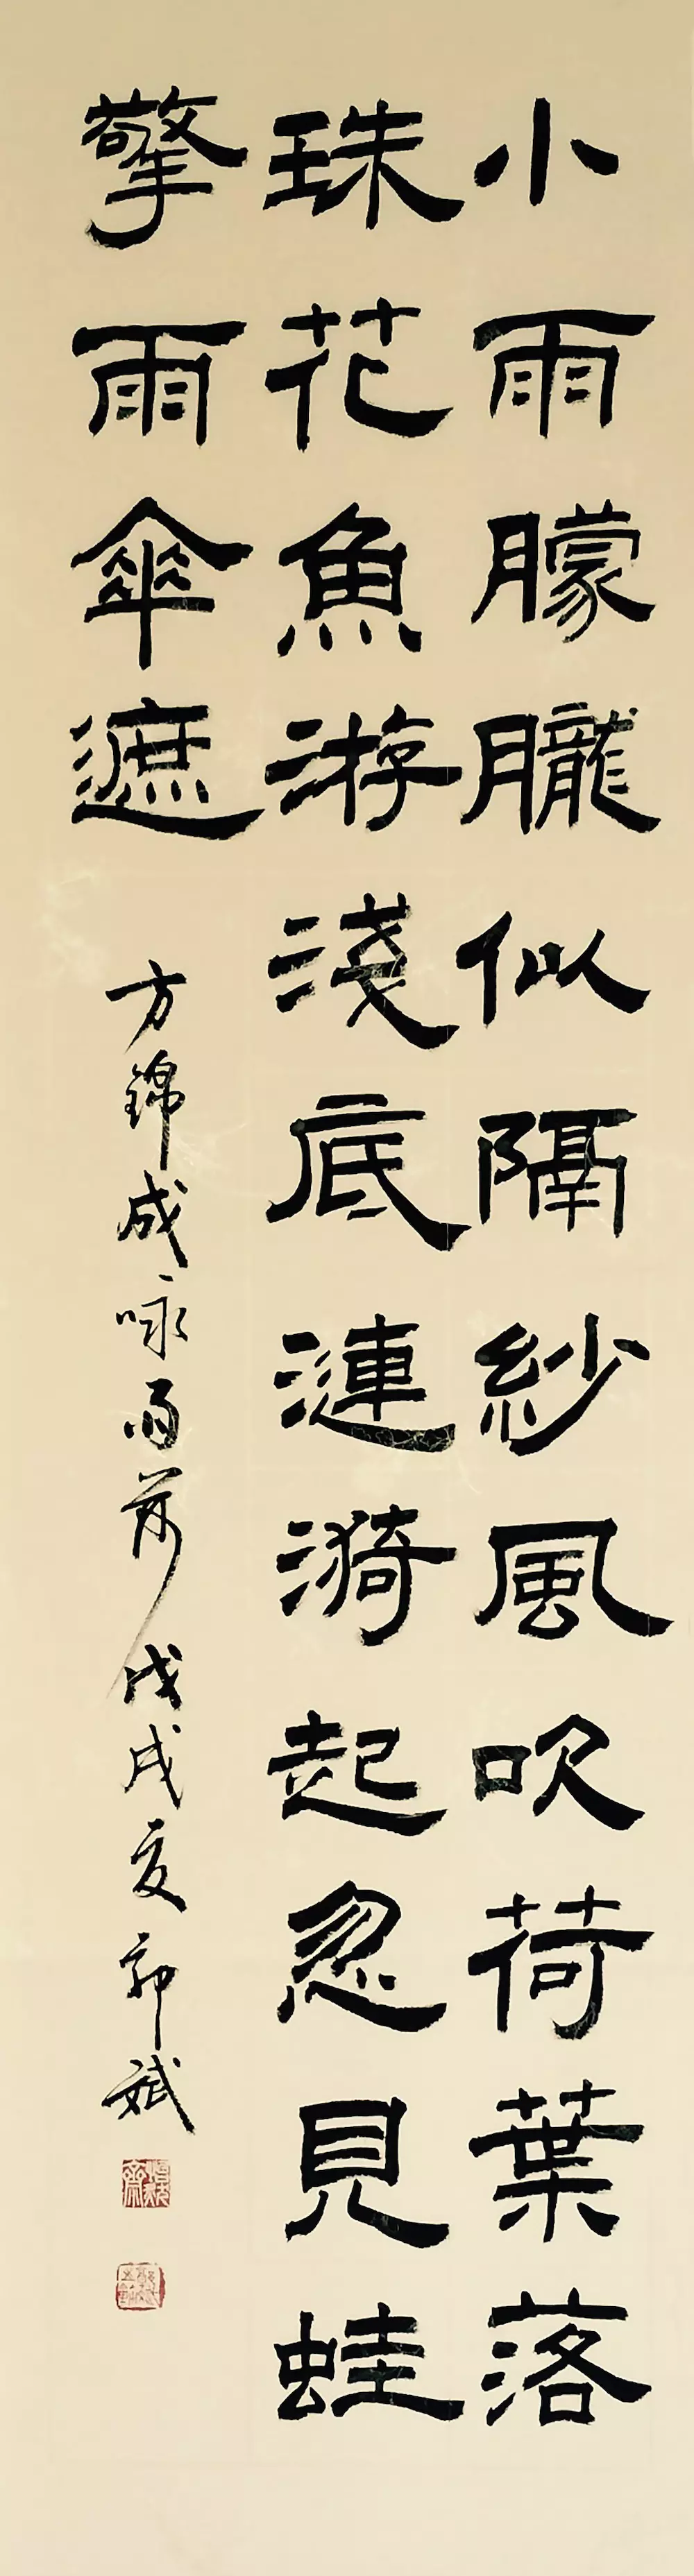 小雨朦朧似隔紗風吹荷葉落
珠花魚游淺底漣漪起忽見蛙
擎雨傘遮
方錦成咏雨荷戊戌夏郭斌